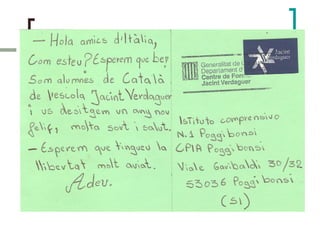 — Hola amics d'Itàlia,
Com esteu? Esperem que bé,
Som alumnes de Català
de l'escola Jacint Verdaguer
i us desitgem un any nou
feliç, molta sort i salut.
— Esperem que tingueu la
llibertat molt aviat.
Adeu.
Generalitat de
Departament d'
Centre de Form
Jacint Verdaguer
Jacint
Verdaguer
Istituto comprensivo
N.1 Poggibonsi
CPIA Poggibonsi
Viale Garibaldi 30/32
53036 Poggibonsi
(SI)